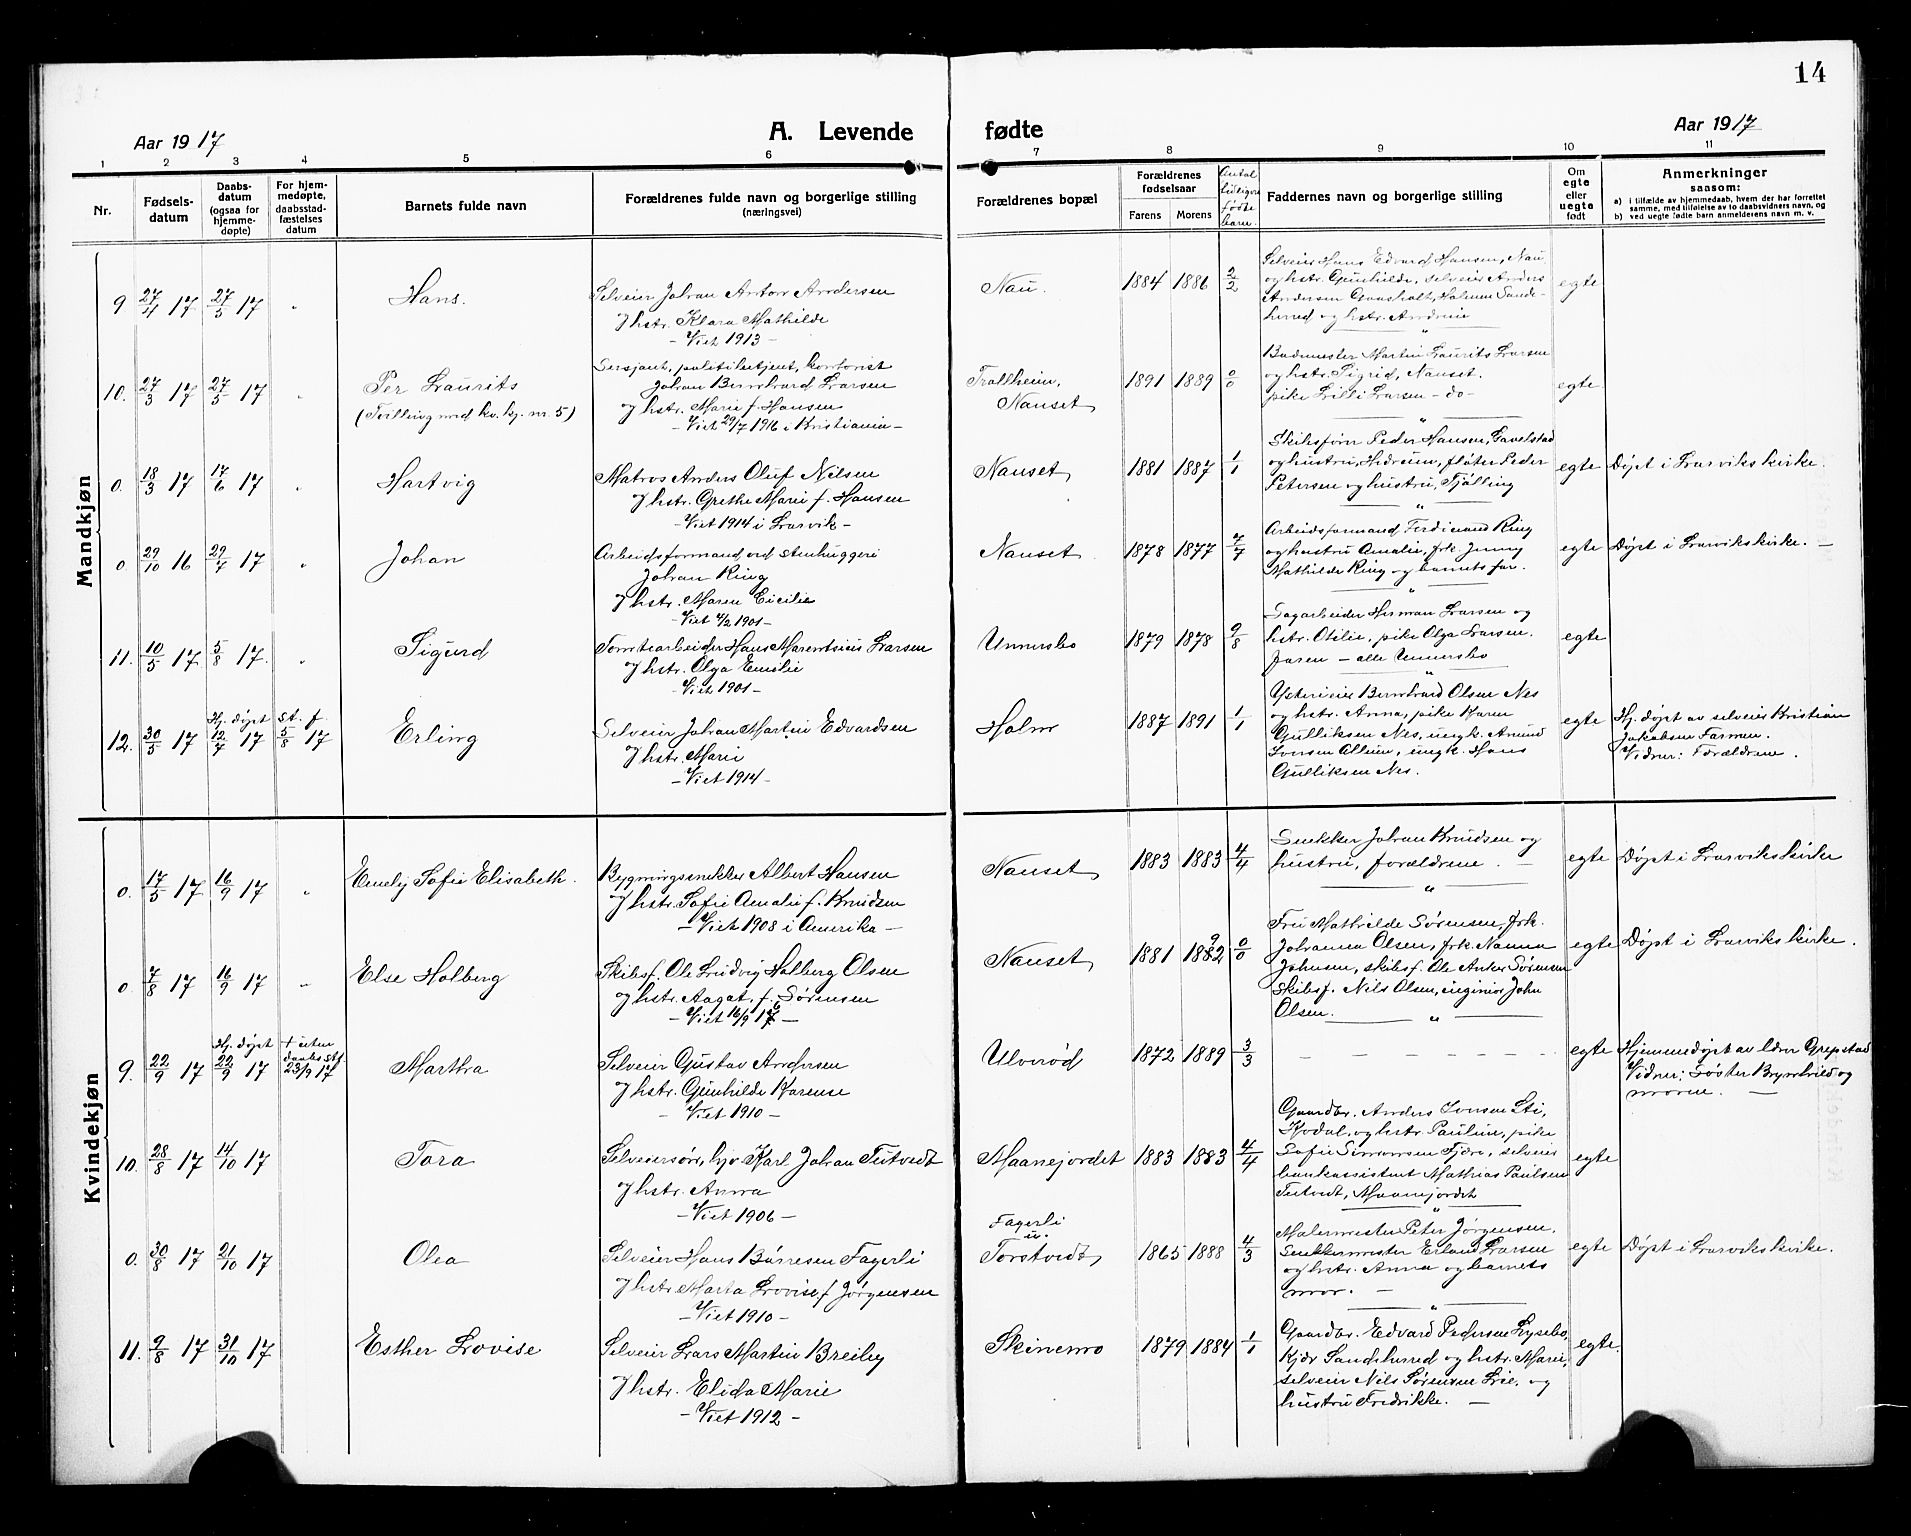 14
Aar 1917 A. Levende fødte Aar 1917
1 2 3 4 5 6 7 8 9 10 11
Nr. Fødsels-datum Daabs-datum (ogsaa for hjemme-døpte) For hjem-medøpte, daabsstad-fæstelses datum Barnets fulde navn Forældrenes fulde navn og borgerlige stilling (næringsvei) Forældrenes bopæl Forældrenes fødselsaar Farens Morens Antal tidligere fødte barn Faddernes navn og borgerlige stilling Om egte eller uegte født Anmerkninger saasom:
a) i tilfælde av hjemmedaab, hvem der har forrettet samme, med tilføielse av to daabsvidners navn, og
b) ved uegte fødte barn anmelderens navn m. v.
Mandkjøn
9 27/4 17 27/5 17 " Hans. Selveier Johan Anton Andersen
og hstr. Klara Mathilde
- Viet 1913 -
Nau. 1884 1886 2/2
Selveier Hans Edvard Hansen, Nau
og hstr. Gunhilde, selveier Anders
Andersen Gaasholt, Holmen Sande-
herred og hstr. Andrine
egte
10. 27/3 17 27/5 17 " Per Laurits
(Tvilling med kv. kj. nr. 5)
Sersjant, politibetjent, kontorist
Johan Bernhard Larsen
og hstr. Marie f. Hansen
- Viet 29/7 1916 i Kristiania -
Trollheim,
Nanset 1891 1889 0/0
Bademester Martin Laurits Larsen
og hstr. Sigrid, Nanset.
pike Lilli Larsen - do -
egte
0. 18/3 17 17/6 17 " Hartvig
Matros Anders Oluf Nilsen
og hstr. Grethe Marie f. Hansen
- Viet 1914 i Larvik -
Nanset 1881 1887 1/1
Skibsfører Peder Hansen,
og hustru, fløter Peder
Petersen og hustru, Tjølling
egte Døpt i Larviks kirke.
0. 29/10 16 29/4 17 " Johan
Arbeidsformand ved stenhuggeri
Johan Ring
og hstr. Maren Cicilie
- Viet 4/2 1901 -
Nanset 1878 1877 7/7
Arbeidsformand Ferdinand Ring
og hustru Amalie, frk. Jenny
Mathilde Ring og barnets far.
egte Døpt i Larviks kirke. -
11. 10/5 17 5/8 17. " Sigurd
Tomtearbeider Hans Marentsius Larsen
og hstr. Olga Emilie
- Viet 1901 -
Unnersbo 1879 1878 9/8
Sagarbeider Herman Larsen og
hstr. Otilie, pike Olga Larsen.
faren - alle Unnersbo
egte
12. 30/5 17 Hj. døpt 12/7 17 st. f. 5/8 17 Erling
Selveier Johan Martin Edvardsen
og hstr. Marie
- Viet 1914 -
Holm 1887 1891 1/1
Bernhard Olsen Nes
og hstr. Anna, pike Karen
Gulliksen Nes, ungk. Amund
Ionsen Allum, ungk. Hans
Gulliksen Nes.
egte Hj. døpt av selveier Kristian
Jakobsen Farmen.
Vidner: Forældrene.
Kvindekjøn
0. 17/5 17 16/9 17 " Emely Sofie Elisabeth.
Bygningssnekker Albert Hansen
og hstr. Sofie Amalie f. Knudsen
- Viet 1908 i Amerika -
Nanset 1883 1883 4/4
Snekker Johan Knudsen og
hustru, forældrene. -
egte Døpt i Larviks kirke
0. 7/8 17 16/9 17 " Else Holberg
Skibsf. Ole Ludvig Holberg Olsen
og hstr. Aagat. f. Sørensen
- Viet 16/9 16 -
Nanset 1881 1892 0/0
Fru Mathilde Sørensen, frk.
Johanna Olsen, frk. Nanna
Johnsen, skibsf. Ole Anker Sørensen
Skibsf. Nils Olsen, ingeniør John
Olsen.
egte Døpt i Larviks kirke.
9. 22/9 17 Hj. døpt 22/9 17 + uten daabs stf. 23/9 17 Martha
Selveier Gustav Andersen
og hstr. Gunhilde Karense
- Viet 1910 -
Ulverød 1872 1889 3/3
- - - - - -
egte Hjemmedøpt av lærer Grepstad
Vidner: Søster Brynhild og
moren. -
10. 28/8 17 14/10 17 Tora
Selveiersøn, Karl Johan Tutvedt
og hstr. Anna
- Viet 1906 -
Maanejordet 1883 1883 4/4
Gaardbr. Anders Ionsen Sti,
Kodal, og hstr. Pauline, pike
Sofie Simonsen Fjære, selveier
bankassistent Mathias Paulsen
Tutvedt, Maanejordet
egte
0. 30/8 17 21/10 17 Olea
Selveier Hans Børresen Fagerli
og hstr. Marta Lovise f. Jørgensen
- Viet 1910 -
Fagerli
u.
Torstvedt 1865 1888 4/3
Malermester Peter Jørgensen.
Snekkermester Erland Larsen
og hstr. Anna og barnets
mor. -
egte Døpt i Larviks kirke.
11. 9/8 17 31/10 17 Esther Lovise
Selveier Lars Martin Breiby
og hstr. Elida Marie
- Viet 1912 -
Skinnmo 1879 1884 1/1
Gaardbr. Edvard Pedersen Lysebo,
Kjær Sandeherred og hstr. Marie,
selveier Nils Sørensen Lie, og
hustru Fredrikke. -
egte.